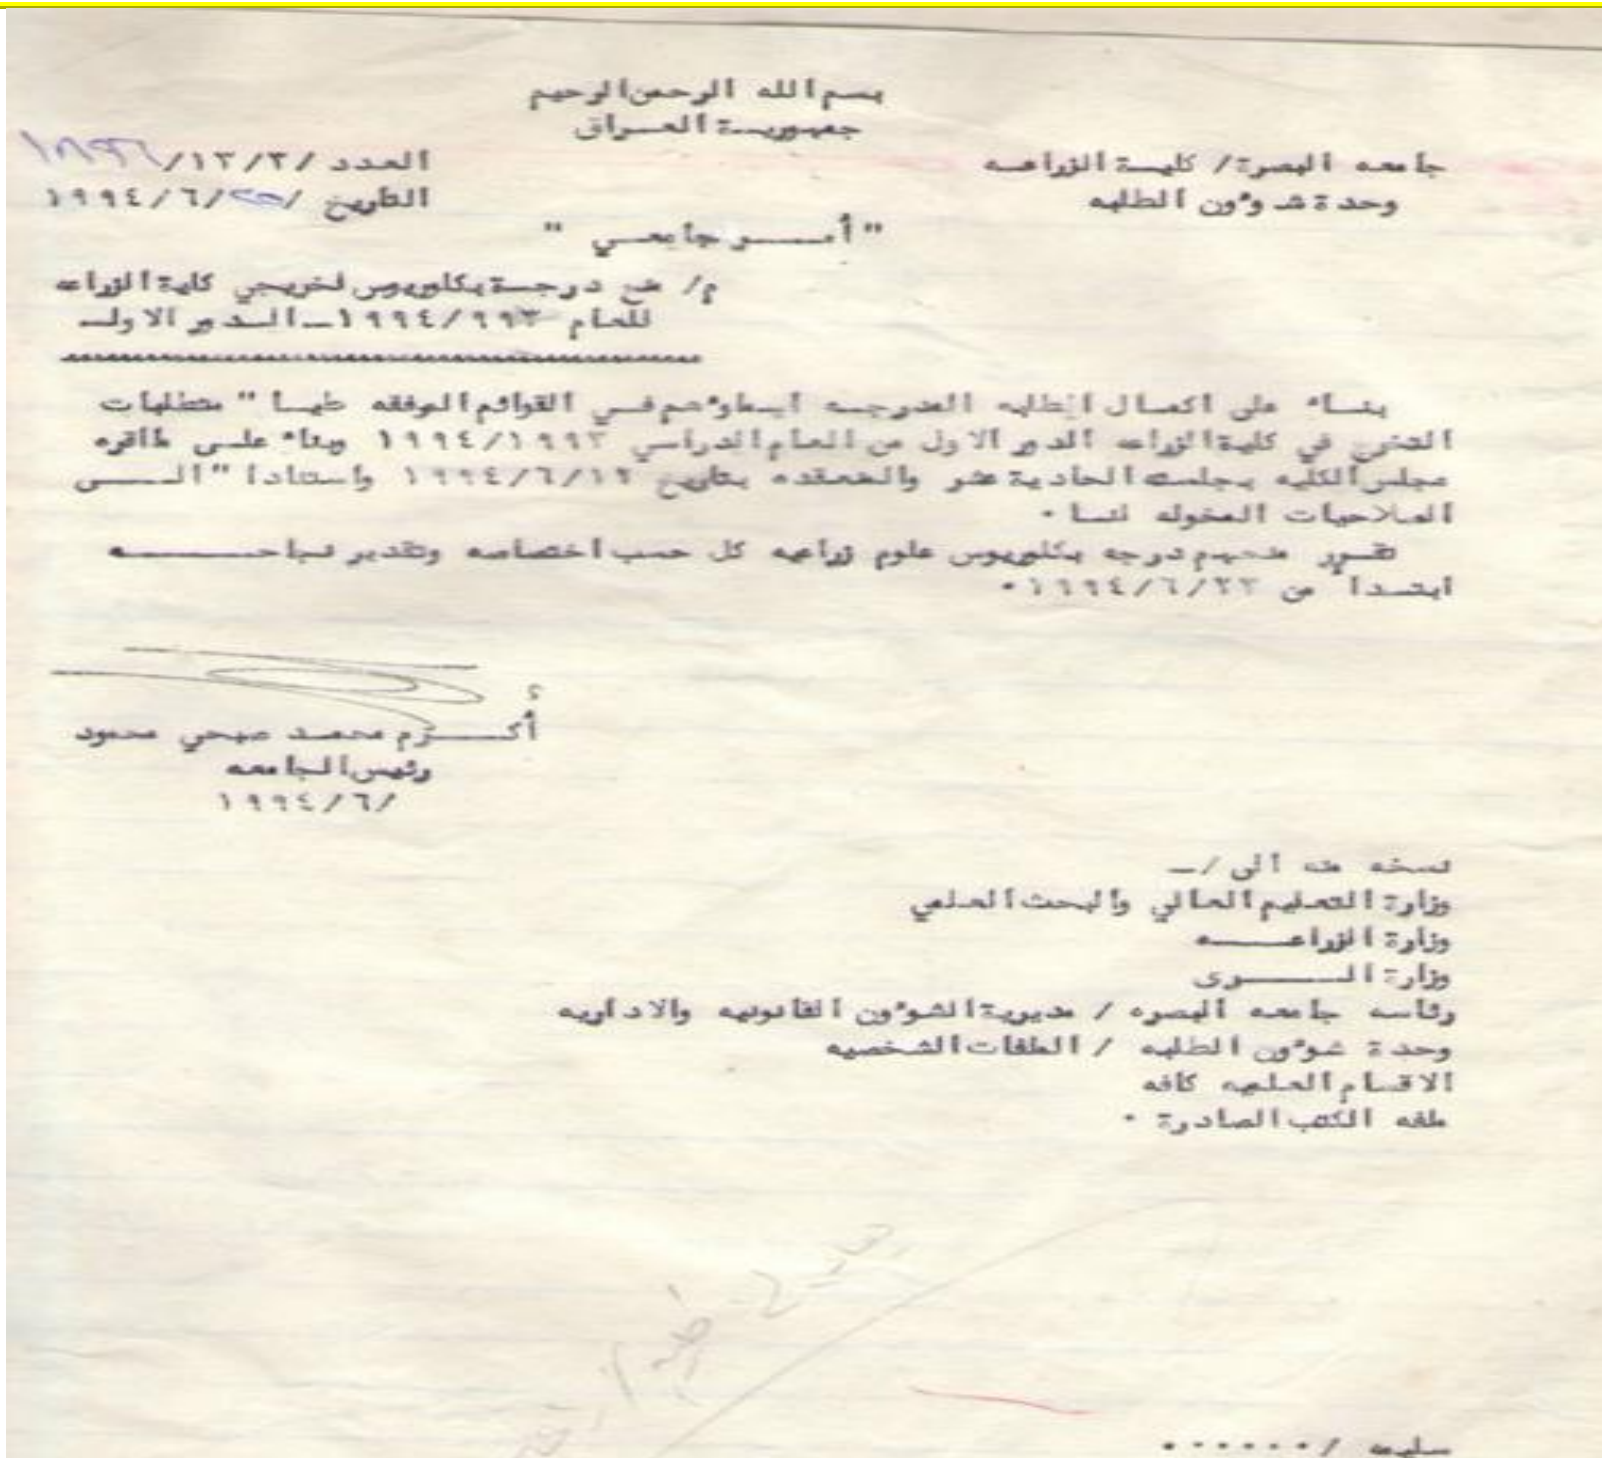 بسم الله الرحمن الرحيم
جمهوريـة العـراق
جامعه البصرة/ كليـة الزراعـه
العدد /١٣/٣/
وحدة شؤون الطلبه
التأريخ / /١٩٩٤/٦
"أمـــر جامعـي "
م/ منح درجـة بكلوريوس لخريجي كلية الزراعه
للعام ١٩٩٤/٩٩٣ــ الـدور الاولـ
بنـاء على اكمـال الطلبه المدرجـه اسماؤهم فـي القوائم المرفقه طيـا " متطلبات
التخرج في كلية الزراعه الدور الاول من العام الدراسي ١٩٩٤/١٩٩٣ وبناء علـى ماأقره
مجلس الكليه بجلسته الحادية عشر والمنعقده بتأريخ ١٩٩٤/٦/١٢ واستنادا "الــــى
الصلاحيات المخوله لنـا ٠
تقـرر منحهم درجه بكلوريوس علوم زراعيه كل حسب اختصاصه وتقدير نجاحـــــــه
ابتـدا من ١٩٩٤/٦/٢٣ ٠
أكـــرم محمـد صبحي محمود
رئيس الجامعه
/١٩٩٤/٦
نسخه منه الى /ــ
وزارة التعليم العالي والبحث العلمي
وزارة الزراعــــه
وزارة الـــــرى
رئاسه جامعه البصره / مديرية الشؤون القانونيه والاداريه
وحدة شؤون الطلبه / الملفات الشخصيه
الاقسام العلميه كافه
ملفه الكتب الصادرة ٠
سليمه /٠٠٠٠٠٠